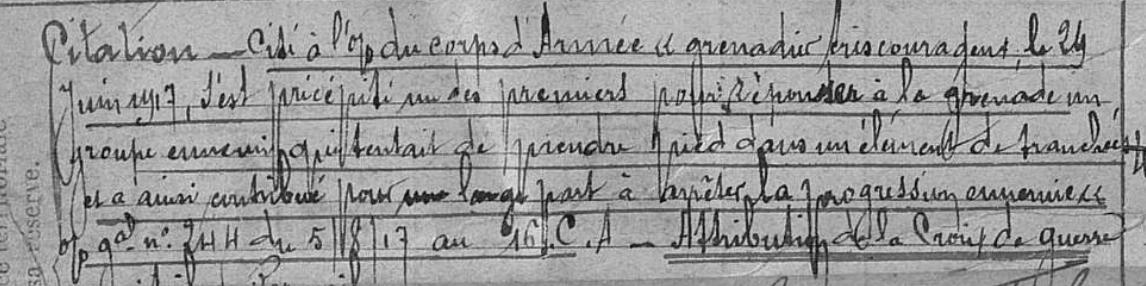 Citation _ Cité à l'o/ du corps d'Armée « grenadier très courageux, le 24
Juin 1917, s'est précipité un des premiers pour repousser à la grenade un
groupe ennemi qui tentait de prendre pied dans un élément de tranchées
et a ainsi contribué pour une large part à arrêter la progression ennemie «
o/ gal no 244 du 5/8/17 au 16 C.A _ Attribution de la Croix de guerre
sa réserve.